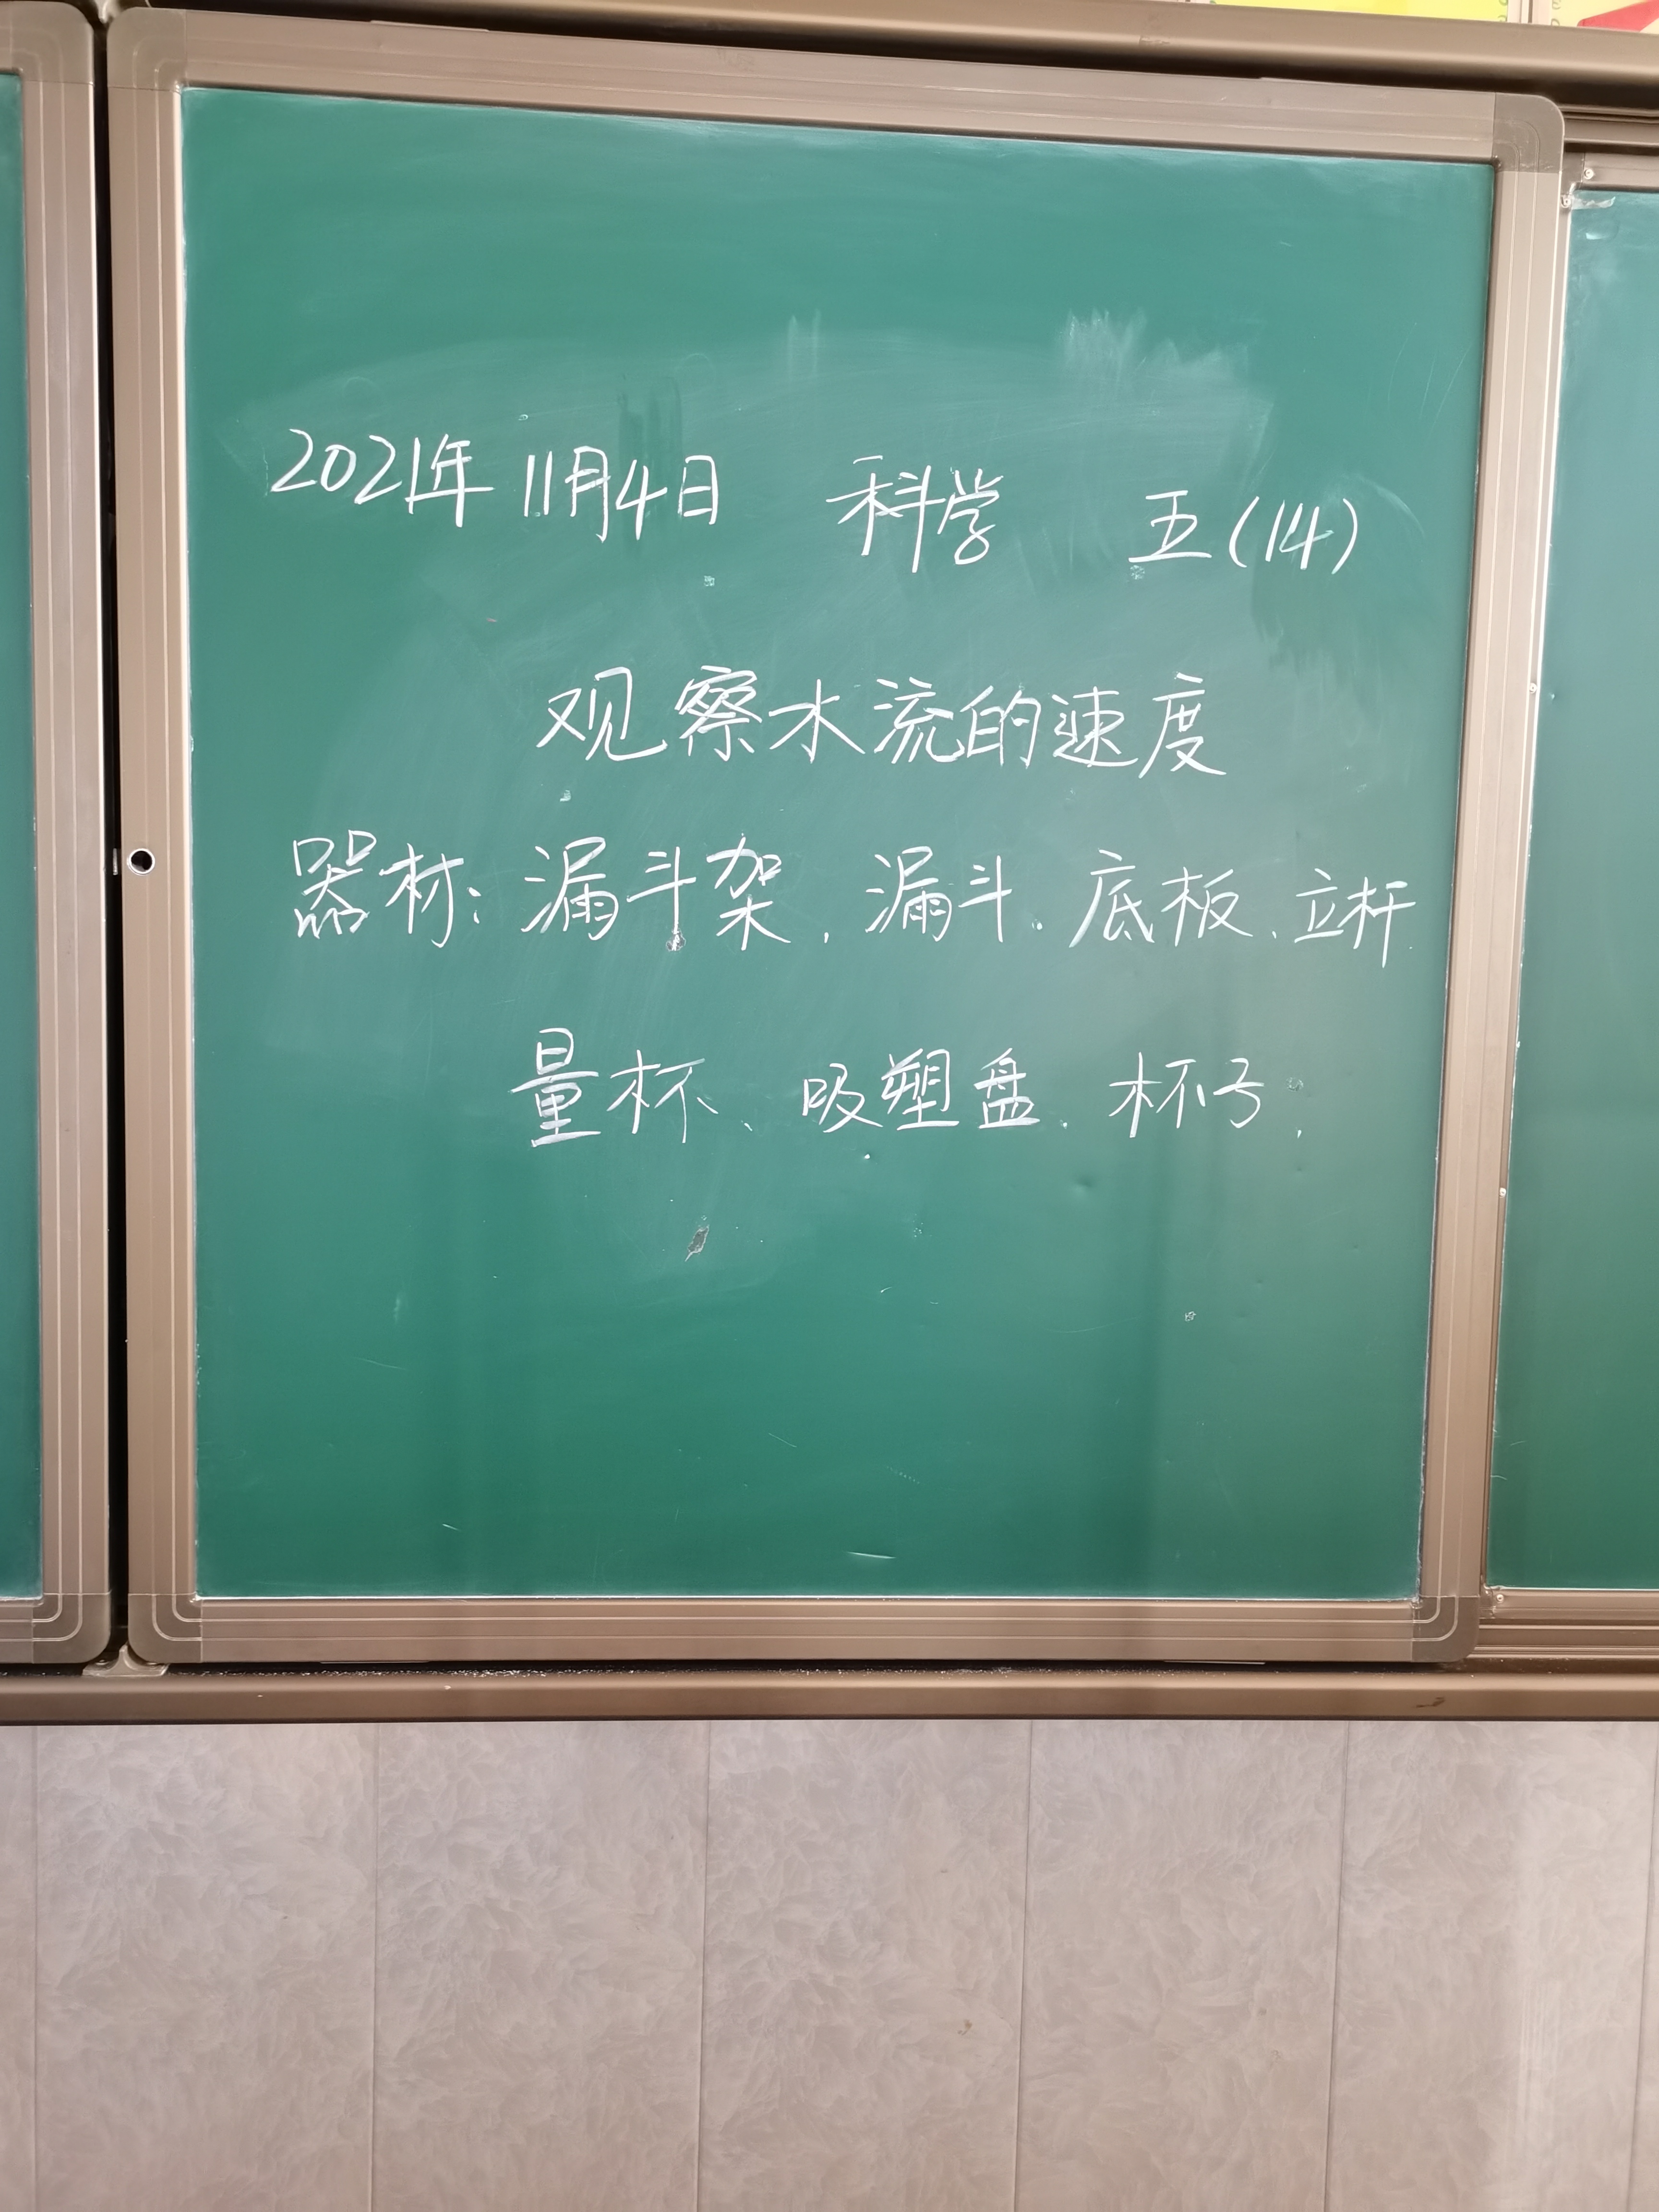 2021年11月4日 科学 五(14)
观察水流的速度
器材：漏斗架、漏斗、底板、立杆
量杯、吸塑盘、杯子、